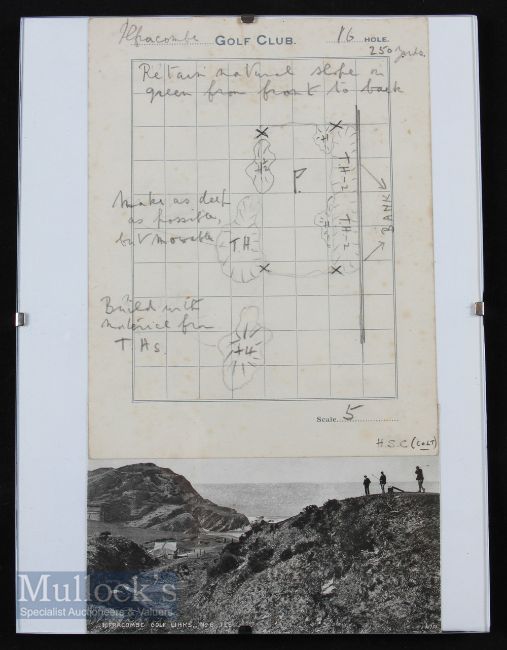 Ilfracombe GOLF CLUB. 16 HOLE.
250 yards.
Retain natural slope in
green from front to back
X X
+2
T.H-2
P.
BANK
Make as deep
as possible,
but mowable
T.H.
T.H-2
X X
Build with
material from
T.Hs.
+4
Scale 5
H.S.C (COLT)
Mullock's
Specialist Auctioneers & Valuers
ILFRACOMBE GOLF LINKS.